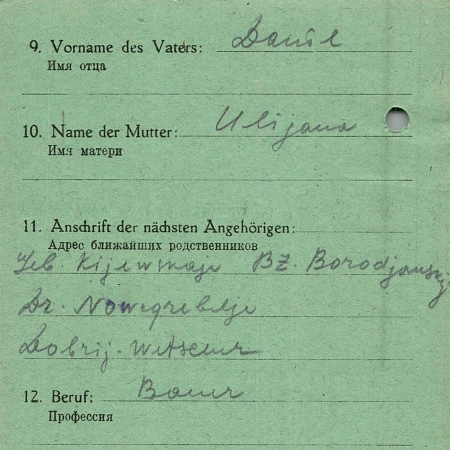 9. Vorname des Vaters: Danil
Имя отца
10. Name der Mutter: Ulijana
Имя матери
11. Anschrift der nächsten Angehörigen:
Адрес ближайших родственников
Geb. Kijewskaje BZ. Borodjanskij
Dr. Nowegrebelje
Dobrij-
12. Beruf: Bauer
Профессия